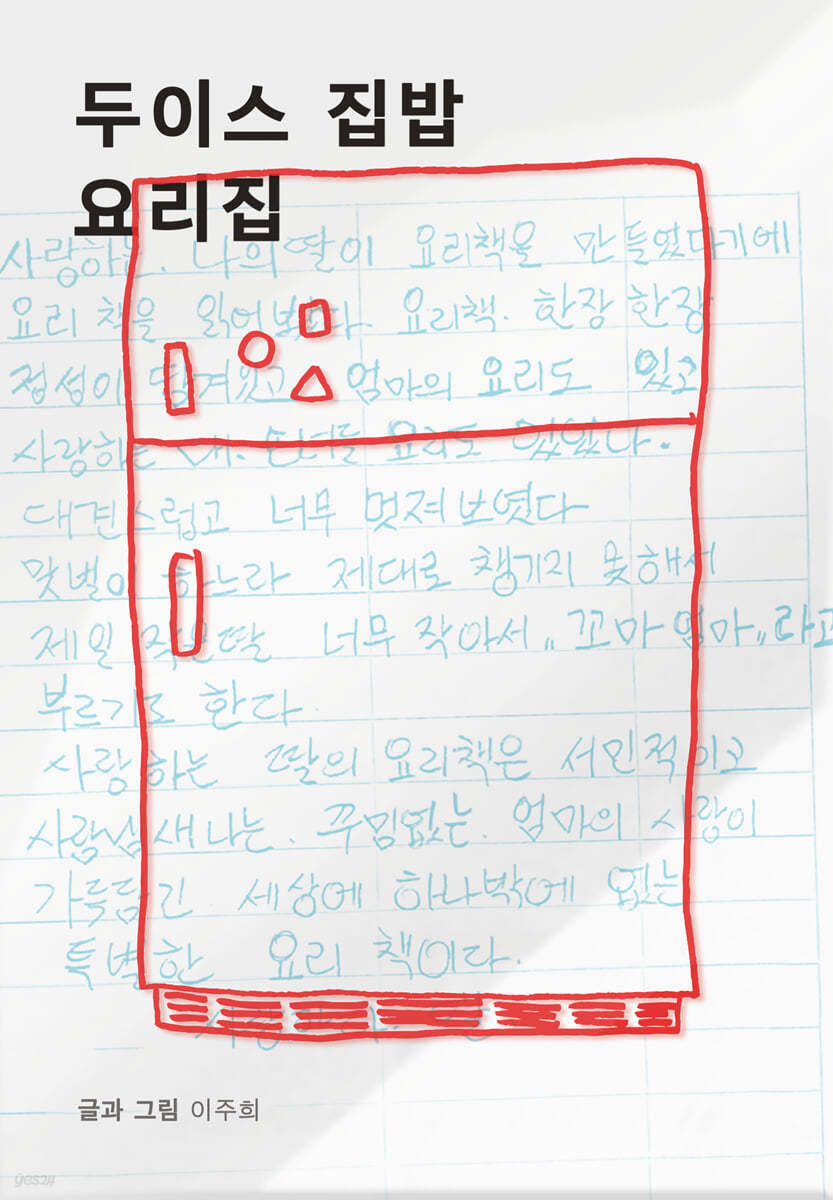 두이스 집밥
요리집
사랑하는. 나의 딸이 요리책을 만들었다기에
요리 책을 읽어보았다. 요리책. 한장 한장
정성이 담겨있고 엄마의 요리도 있고
사랑하는 내. 손녀들 요리도 있었다.
대견스럽고 너무 멋져보엿다
맞벌이 하느라 제대로 챙기지 못해서
제일 작은딸 너무 작아서 "꼬마 엄마" 라고
부르기도 한다.
사랑하는 딸의 요리책은 서민적이고
사람냄새나는. 꾸밈없는. 엄마의 사랑이
가득담긴 세상에 하나밖에 없는
특별한 요리 책이다.
사랑한다. 딸
글과 그림 이주희
yes24